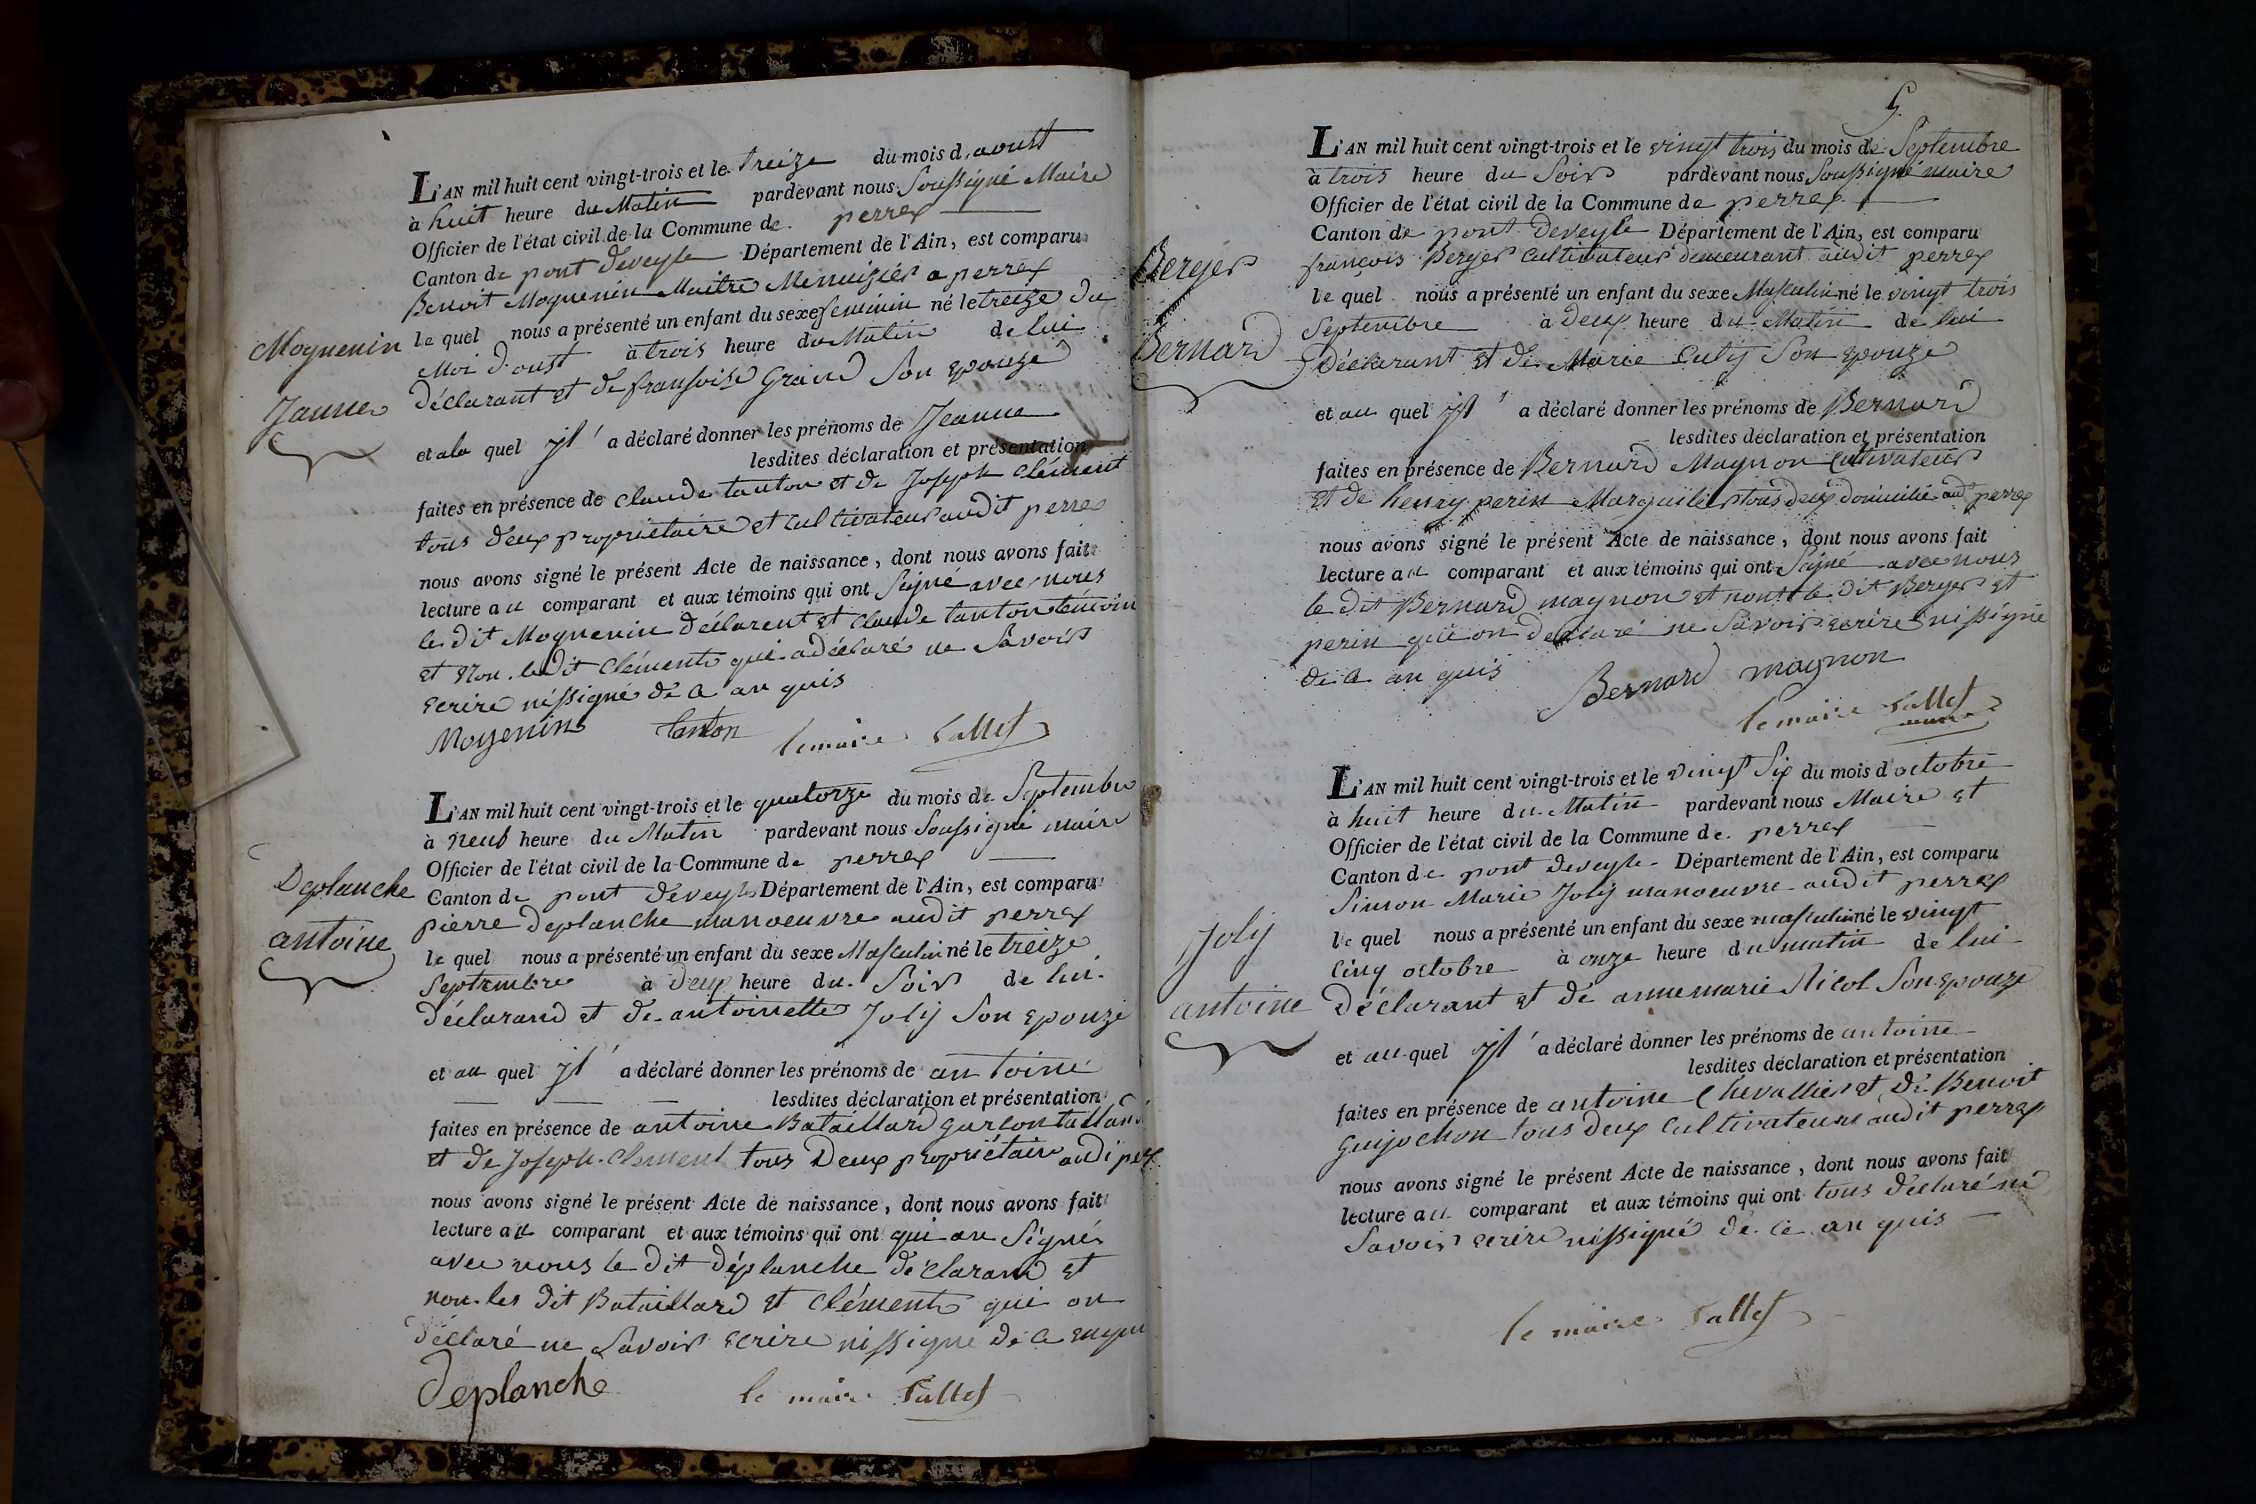 L'AN mil huit cent vingt-trois et le treize du mois d'aoust
à huit heure du Matin pardevant nous Soussigné Maire
Officier de l'état civil de la Commune de perrex
Canton de pont deveyle Département de l'Ain, est comparu
Benoit Moguenin Maitre Menuizier a perrex
le quel nous a présenté un enfant du sexe feminin né le treize du
Moi d'oust à trois heure du Matin de lui
déclarant et de fransoise Grand Son epouze
Moguenin
Janne
et a la quel jl a déclaré donner les prénoms de Jeanne
lesdites déclaration et présentation
faites en présence de claude tanton et de Joseph Clément
tous deux propriétaire et cultivateur audit perrex
nous avons signé le présent Acte de naissance, dont nous avons fait
lecture au comparant et aux témoins qui ont Signé avec nous
le dit Moguenin déclarent et claude tanton témoin
et non le dit Clément qui a déclaré ne Savoir
ecrire nissigné de ce an quis
Moyenin tanton le maire Vallet
L'AN mil huit cent vingt-trois et le quatorze du mois de Septembre
à neuf heure du Matin pardevant nous Soussigné maire
Officier de l'état civil de la Commune de perrex
Canton de pont deveyle Département de l'Ain, est comparu
pierre deplanche manoeuvre audit perrex
le quel nous a présenté un enfant du sexe Masculin né le treize
Septembre à deux heure du Soir de lui
déclarand et de antoinette Joly Son epouze
Deplanche
antoine
et au quel jl a déclaré donner les prénoms de antoine
lesdites déclaration et présentation
faites en présence de antoine Bataillard garcon
et de Joseph Clement tous deux propriétaire audi per
nous avons signé le présent Acte de naissance, dont nous avons fait
lecture au comparant et aux témoins qui ont qui on Signé
avec nous le dit déplanche déclarand et
non les dit Bataillard et Clément qui on
déclaré ne Savoir ecrire nissigné de ce
deplanche le maire Vallet
5
L'AN mil huit cent vingt-trois et le vingt trois du mois de Septembre
à trois heure du Soir pardevant nous Soussigné maire
Officier de l'état civil de la Commune de perrex
Canton de pont Deveyle Département de l'Ain, est comparu
françois Berger cultivateur demeurant audit perrex
le quel nous a présenté un enfant du sexe Masculin né le vingt trois
Septembre à deux heure du Matin de lui
Déclarant et de Marie Culy Son epouze
Berger
Bernard
et au quel jl a déclaré donner les prénoms de Bernard
lesdites déclaration et présentation
faites en présence de Bernard Magnon Cultivateur
et de henry perin Marguilier tous deux domicilié aud perrex
nous avons signé le présent Acte de naissance, dont nous avons fait
lecture au comparant et aux témoins qui ont Signé avec nous
le dit Bernard magnon et non le dit Berger et
perin qui on déclaré ne Savoir ecrire nissigné
de ce an quis
Bernard magnon
le maire Vallet
L'AN mil huit cent vingt-trois et le vingt Six du mois d'octobre
à huit heure du Matin pardevant nous Maire et
Officier de l'état civil de la Commune de perrex
Canton de pont deveyle Département de l'Ain, est comparu
Simon Marie Joly manoeuvre audit perrex
le quel nous a présenté un enfant du sexe masculin né le vingt
cinq octobre à onze heure du matin de lui
déclarant et de anne marie Nicol Son epouze
Joly
antoine
et au quel jl a déclaré donner les prénoms de antoine
lesdites déclaration et présentation
faites en présence de antoine Chevallier et de Benoit
Guijochon tous deux cultivateurs audit perrex
nous avons signé le présent Acte de naissance, dont nous avons fait
lecture au comparant et aux témoins qui ont tous déclaré ne
Savoir ecrire nissigné de ce an quis
le maire Vallet